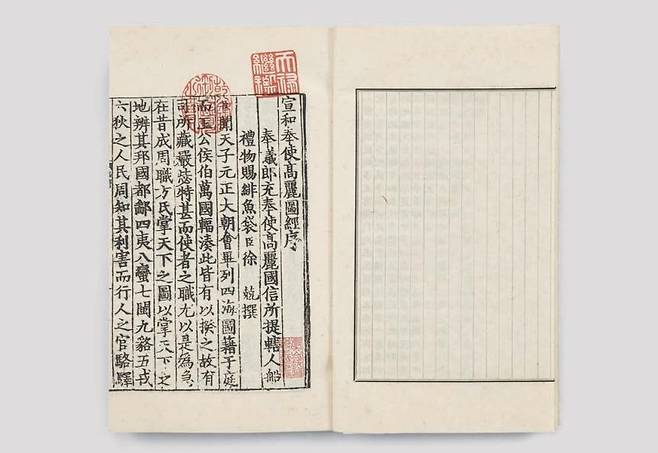 天祿繼鑑
乾隆御覽之寶
宣和奉使高麗圖經序
奉議郎充奉使高麗國信所提轄人船
禮物賜緋魚袋臣徐 兢撰
臣聞天子元正大朝會畢列四海圖籍于庭
而王公侯伯萬國輻湊此皆有以揆之故有
司所藏嚴毖特甚而使者之職尤以是為急
在昔成周職方氏掌天下之圖以掌天下之
地辨其邦國都鄙四夷八蠻七閩九貉五戎
六狄之人民周知其利害而行人之官駱驛